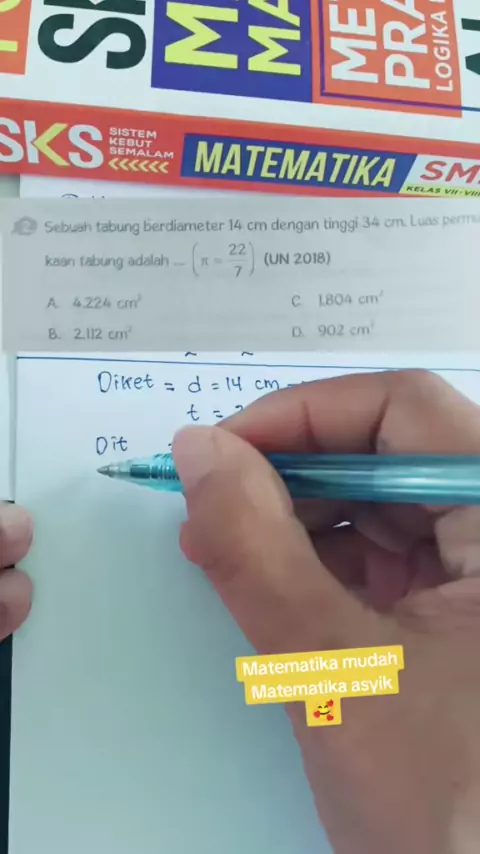 SK
M
MA
ME
PRA
LOGIKA
SKS SISTEM
KEBUT
SEMALAM
MATEMATIKA
SM
KELAS VII-VIII
2 Sebuah tabung berdiameter 14 cm dengan tinggi 34 cm. Luas permu
kaan tabung adalah ... (π = 22/7) (UN 2018)
A. 4.224 cm²
C. 1.804 cm²
B. 2.112 cm²
D. 902 cm²
Diket = d = 14 cm
t =
Dit
Matematika mudah
Matematika asyik
🥰